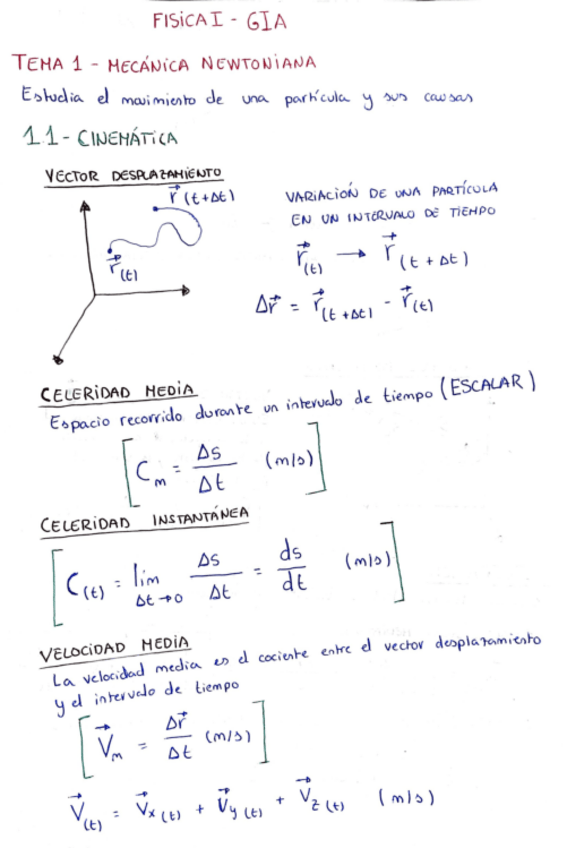 FISICA I - GIA
TEMA 1 - MECÁNICA NEWTONIANA
Estudia el movimiento de una partícula y sus causas
1.1 - CINEMÁTICA
VECTOR DESPLAZAMIENTO
r⃗ (t+Δt)
r⃗ (t)
VARIACIÓN DE UNA PARTÍCULA
EN UN INTERVALO DE TIEMPO
r⃗ (t) → r⃗ (t + Δt)
Δr⃗ = r⃗ (t + Δt) - r⃗ (t)
CELERIDAD MEDIA
Espacio recorrido durante un intervalo de tiempo (ESCALAR)
[ C_m = Δs / Δt (m/s) ]
CELERIDAD INSTANTÁNEA
[ C(t) = lim Δt→0 Δs / Δt = ds / dt (m/s) ]
VELOCIDAD MEDIA
La velocidad media es el cociente entre el vector desplazamiento
y el intervalo de tiempo
[ V⃗_m = Δr⃗ / Δt (m/s) ]
V⃗ (t) = V⃗x (t) + V⃗y (t) + V⃗z (t) (m/s)